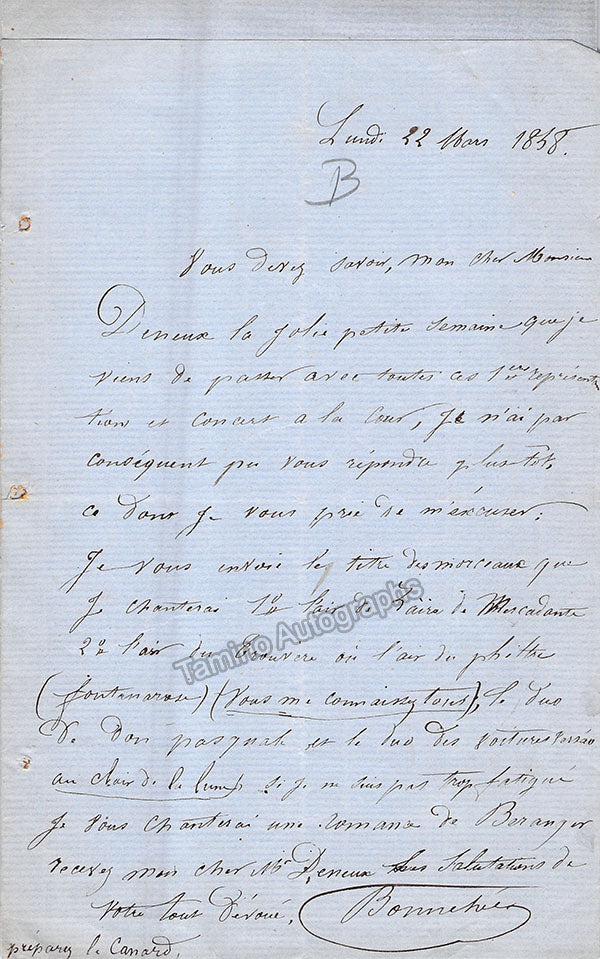 Lundi 22 Mars 1858.
B
Vous devez savoir, mon cher Monsieur
Deneux la jolie petite semaine que je
viens de passer avec toutes ces 1eres représenta
tion et concert a la Cour, Je n'ai par
conséquent pu vous répondre plustot,
ce dont Je vous prie de m'éxcuser.
Je vous envoie le titre des morceaux que
Je chanterai 1o l'air de Zaira de Mercadante
2o l'air du Trouvere où l'air du philtre
(fontanarose) (Vous me connaissez tous), le duo
de Don pasquale et le duo des voitures versées
au clair de la lune) si je ne suis pas trop fatigué
Je vous chanterai une romance de Beranger
recevez mon cher Mr Deneux les Salutations de
Votre tout Dévoué, Bonnehée
préparez le Canard.
Tamino Autographs